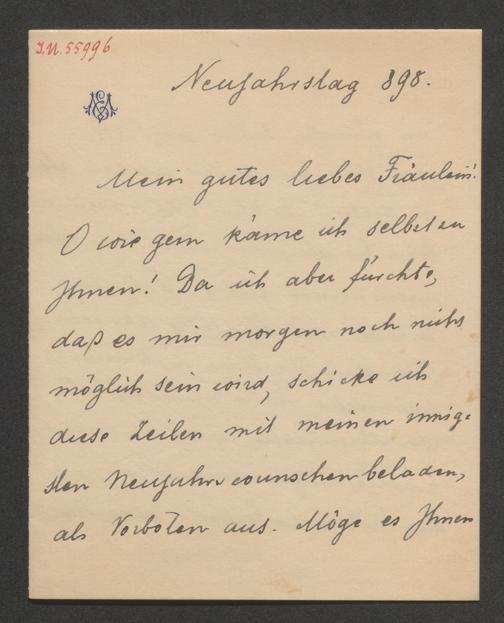 I.N. 55996
Neujahrstag 898.
Mein gutes liebes Fräulein!
O wie gern käme ich selbst zu
Ihnen! Da ich aber fürchte,
daß es mir morgen noch nicht
möglich sein wird, schicke ich
diese Zeilen mit meinen innig-
sten Neujahrswünschen beladen,
als Vorboten aus. Möge es Ihnen